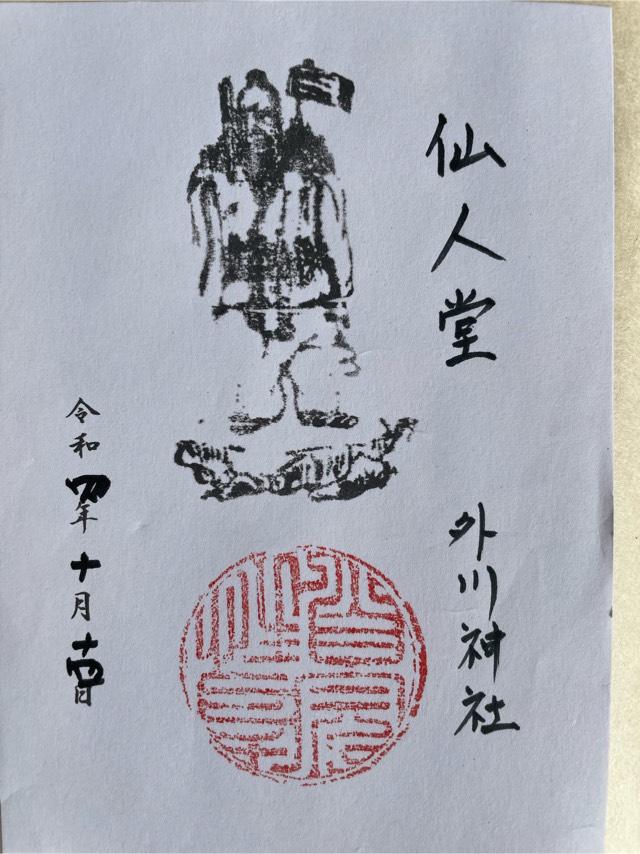 仙人堂
外川神社
令和四年十月十四日